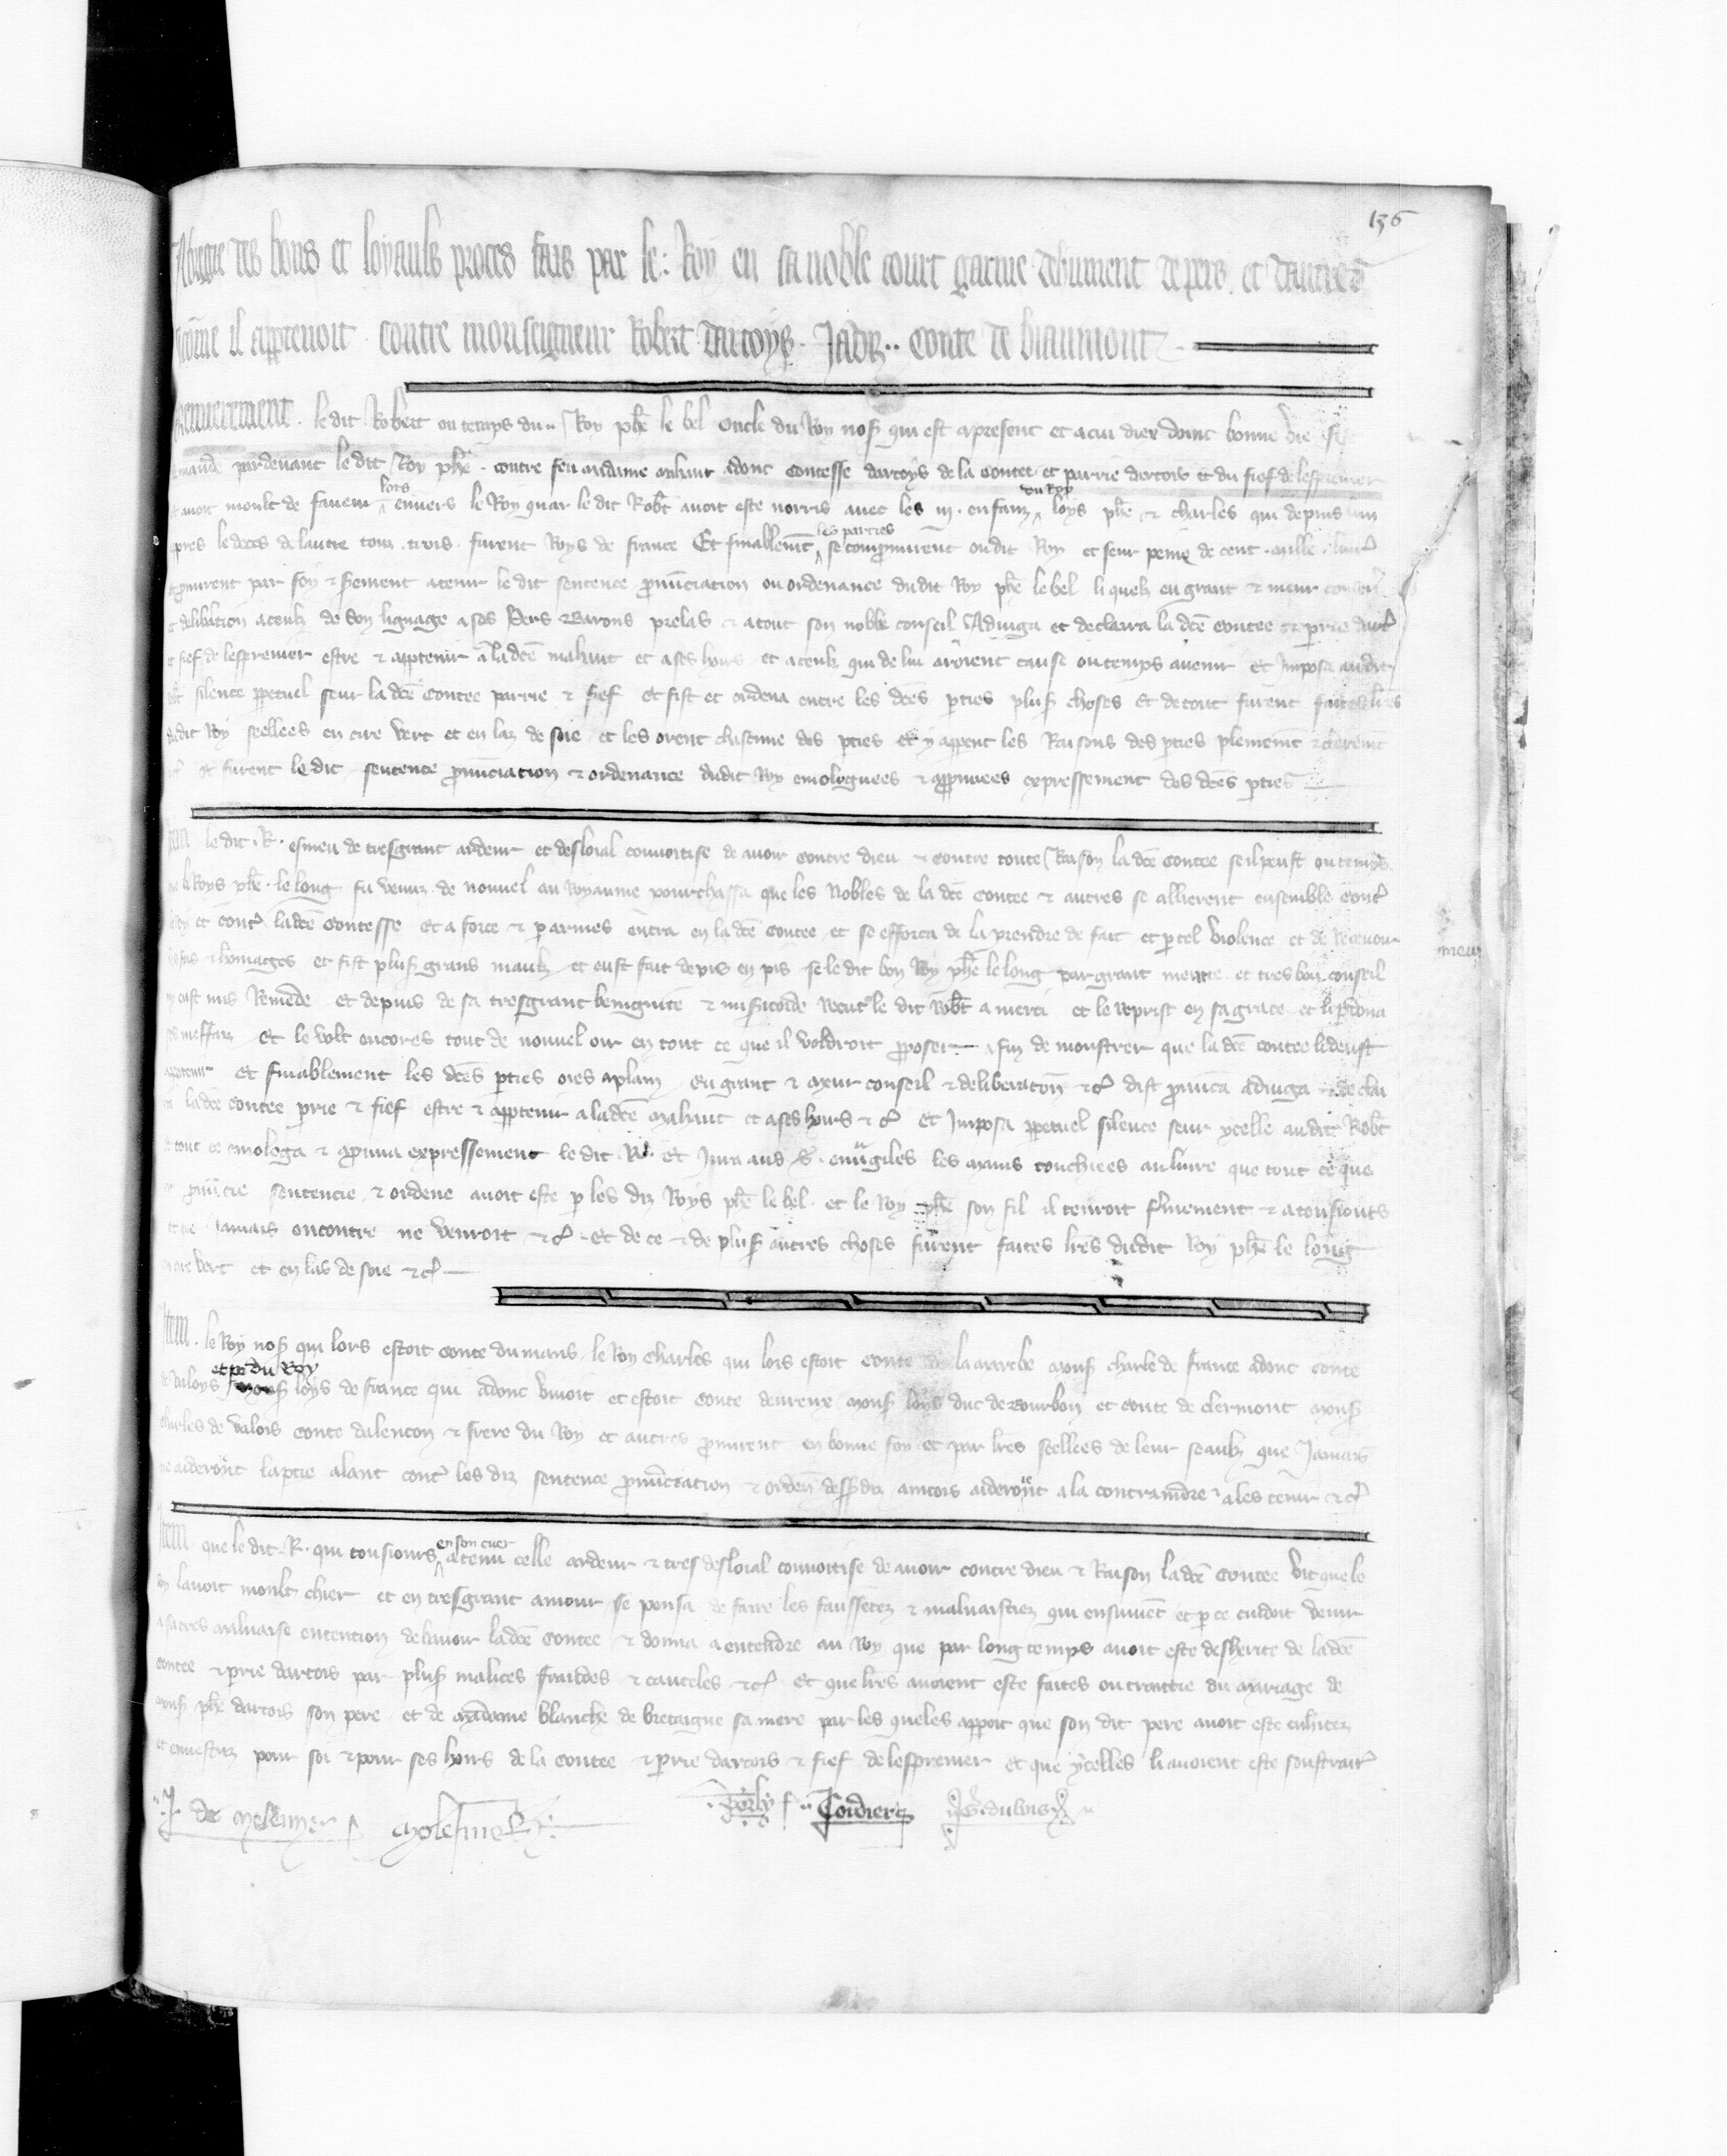 136
des bons et loyauls proces fais par le Roy en sa noble court garnie deuument de pers et dautres
come il apptenoit contre monseigneur Robert dartoys Jadiz conte de biaumont
le dit Robert ou temps du Roy phe le bel oncle du Roy nos qui est apresent et a cui diex doint bonne vie
pardevant le dit Roy phe contre feu madame mahaut adonc contesse dartoys de la contee et parrie dartois et du fief de lespremier
avoit moult de faveur lors envers le Roy quar le dit Robt avoit este norris avec les iij enfanz du Roy loys phe et charles qui depuis lun
apres le deces de lautre touz trois furent Roys de france Et finablemt les parties se compromirent oudit Roy et seur peine de cent mille
et promirent par foy et serement a tenir le dit sentence pronunciation ou ordenance dudit Roy phe le bel li quels en grant et meur conseil
et delibation a ceulz de son lignage a ses Pers Barons prelas et a tout son noble conseil Adjuga et declarra la dce contee et prie
et fief de lespremier estre et apptenir a la dce mahaut et a ses hoirs et a ceulz qui de lui aroient cause ou temps avenir et Imposa audit
silence ppetuel seur la dce contee parrie et fief et fist et ordena entre les dces pties plus choses et de tout furent faites lres
dudit Roy seellees en cire vert et en laz de soie et les orent chascune des pties et y appent les Raisons des pties plenement et cleremt
et furent le dit sentence pronunciation et ordenance dudit Roy emologuees et approuvees expressement des dces pties
Item le dit R. esmeu de tresgrant ardeur et desloial convoitise de avoir contre dieu et contre toute Raison la dce contee seil peust ou temps
que li Roys phe le long fu venuz de nouvel au Royaume pourchassa que les Nobles de la dce contee et autres se allierent ensemble contre
et contre ladce contesse et a force et par armes entra en la dce contee et se efforca de la prendre de fait et p tel violence et de Recevoir
et homages et fist plus grans maulz et eust fait de pis en pis se le dit bon Roy phe le long par grant meurte et tres bon conseil
ny eust mis Remede et depuis de sa tresgrant benignite et misericorde Recut le dit Robt a merci et le Reprist en sa grace et li pdona
ses meffaiz Et le volt oncores tout de nouvel oir en tout ce que il voldroit pposer afin de monstrer que la dce contee li deust
apptenir Et finablement les dces pties oies a plain en grant et meur conseil et deliberation etc dist pronunca adjuga et decla
ra ladce contee prie et fief estre et apptenir a ladce Mahaut et a ses hoirs etc et Imposa ppetuel silence seur ycelle audit Robt
et tout ce emologa et approuva expressement le dit R. et Jura aus s. euvgiles les mains touchiees au livre que tout ce que
sentencie et ordene avoit este p les diz Roys phe le bel et le Roy phe son fil il tenroit fermement et a tousjours
et ne Jamais encontre ne venroit etc Et de ce et de plus autres choses furent faites lres dudit Roy phe le long
en cire vert et en las de soie etc
Item le Roy nos qui lors estoit conte du mans le Roy charles qui lors estoit conte de la marche mons charle de france adonc conte
de valoys et pere du Roy mons loys de france qui adonc vivoit et estoit conte devreux mons loys duc de bourbon et conte de clermont mons
charles de valois conte dalencon et frere du Roy et autres promirent en bonne foy et par lres seellees de leur seaulz que Jamais
ne aideront la ptie alant contre les diz sentence pronunciation et orden desdiz aincois aideront a la contraindre a les tenir etc
Item que le dit R. qui tousjours en son cuer a tenu celle ardeur et tres desloial convoitise de avoir contre dieu et Raison la dce contee vit que le
Roy lavoit moult chier et en tresgrant amour se pensa de faire les faussetez et malvaistiez qui ensuivent et p ce cuidoit venir
a sa tres malvaise entention de lavoir la dce contee et donna a entendre au Roy que par long temps avoit este desherite de la dce
contee et prie dartois par plus malices fraudes et cauteles etc et que lres avoient este faites ou traittie du mariage de
mons phe dartois son pere et de madame blanche de bretaigne sa mere par les queles appoit que son dit pere avoit este enheritez
et envestuz pour soi et pour ses hoirs de la contee et prie dartois et fief de lespremier et que ycelles li avoient este soustraites